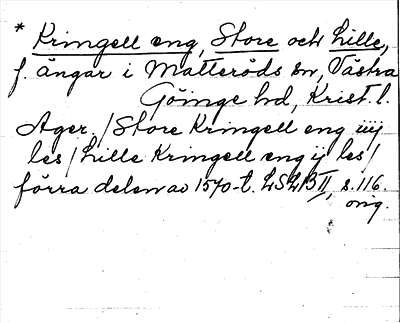 * Kringell eng, Store och Lille,
f. ängar i Matteröds sn, Västra
Göinge hd, Krist. l.
Ager. / Store Kringell eng iiij
les / Lille Kringell eng ij les /
förra delen av 1570-t. LSLB II, s. 116.
orig.